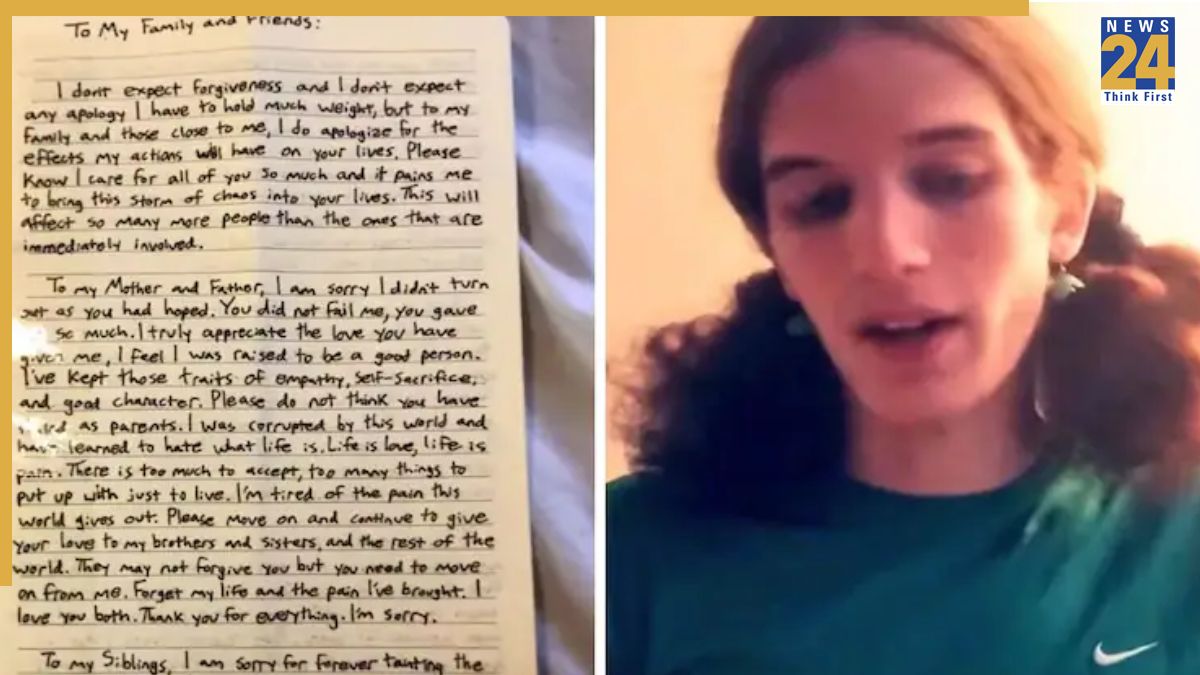 To My Family and Friends:
I don't expect forgiveness and I don't expect
any apology I have to hold much weight, but to my
family and those close to me, I do apologize for the
effects my actions will have on your lives. Please
Know I care for all of you so much and it pains me
to bring this storm of chaos into your lives. This will
affect so many more people than the ones that are
immediately involved.
To my Mother and Father, I am sorry I didn't turn
out as you had hoped. You did not fail me, you gave
so much. I truly appreciate the love you have
given me, I feel I was raised to be a good person.
I've kept those traits of empathy, self-sacrifice,
and good character. Please do not think you have
as parents. I was corrupted by this world and
have learned to hate what life is. Life is love, life is
pain. There is too much to accept, too many things to
put up with just to live. I'm tired of the pain this
world gives out. Please move on and continue to give
your love to my brothers and sisters, and the rest of the
world. They may not forgive you but you need to move
on from me. Forget my life and the pain I've brought. I
love you both. Thank you for everything. I'm sorry.
To my Siblings, I am sorry for forever tanting the
NEWS
24
Think First